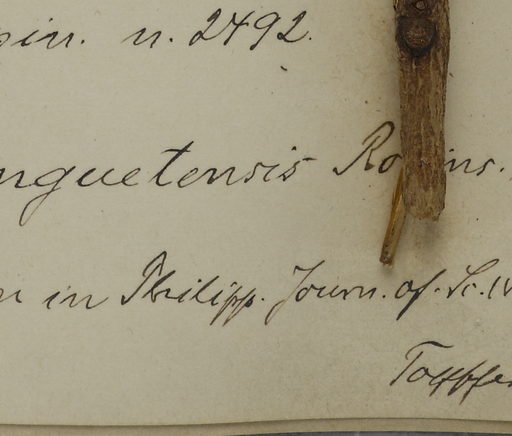 pin. n. 2492.
nguetensis Ro ins.
n in Philipp. Journ. of. Sc. IV